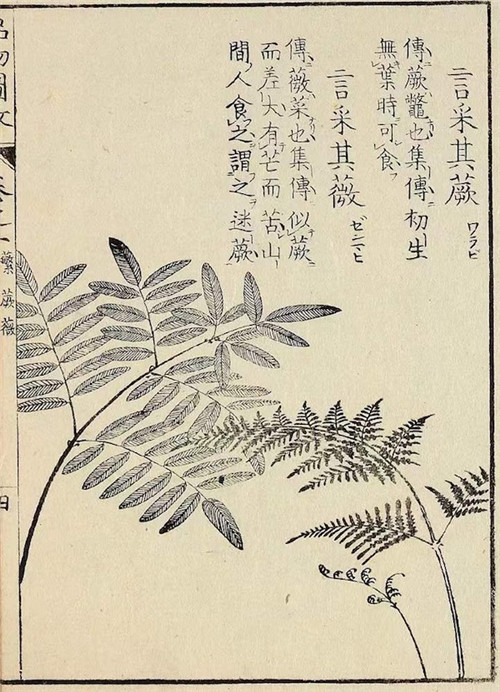 言采其蕨 ワラビ
傳蕨鼈也集傳初生
無葉時可食
言采其薇 ゼンマヒ
傳薇菜也集傳似蕨
而差大有芒而苦山
間人食之謂之迷蕨
品物圖攷
卷之一
蘩 蕨 薇
四